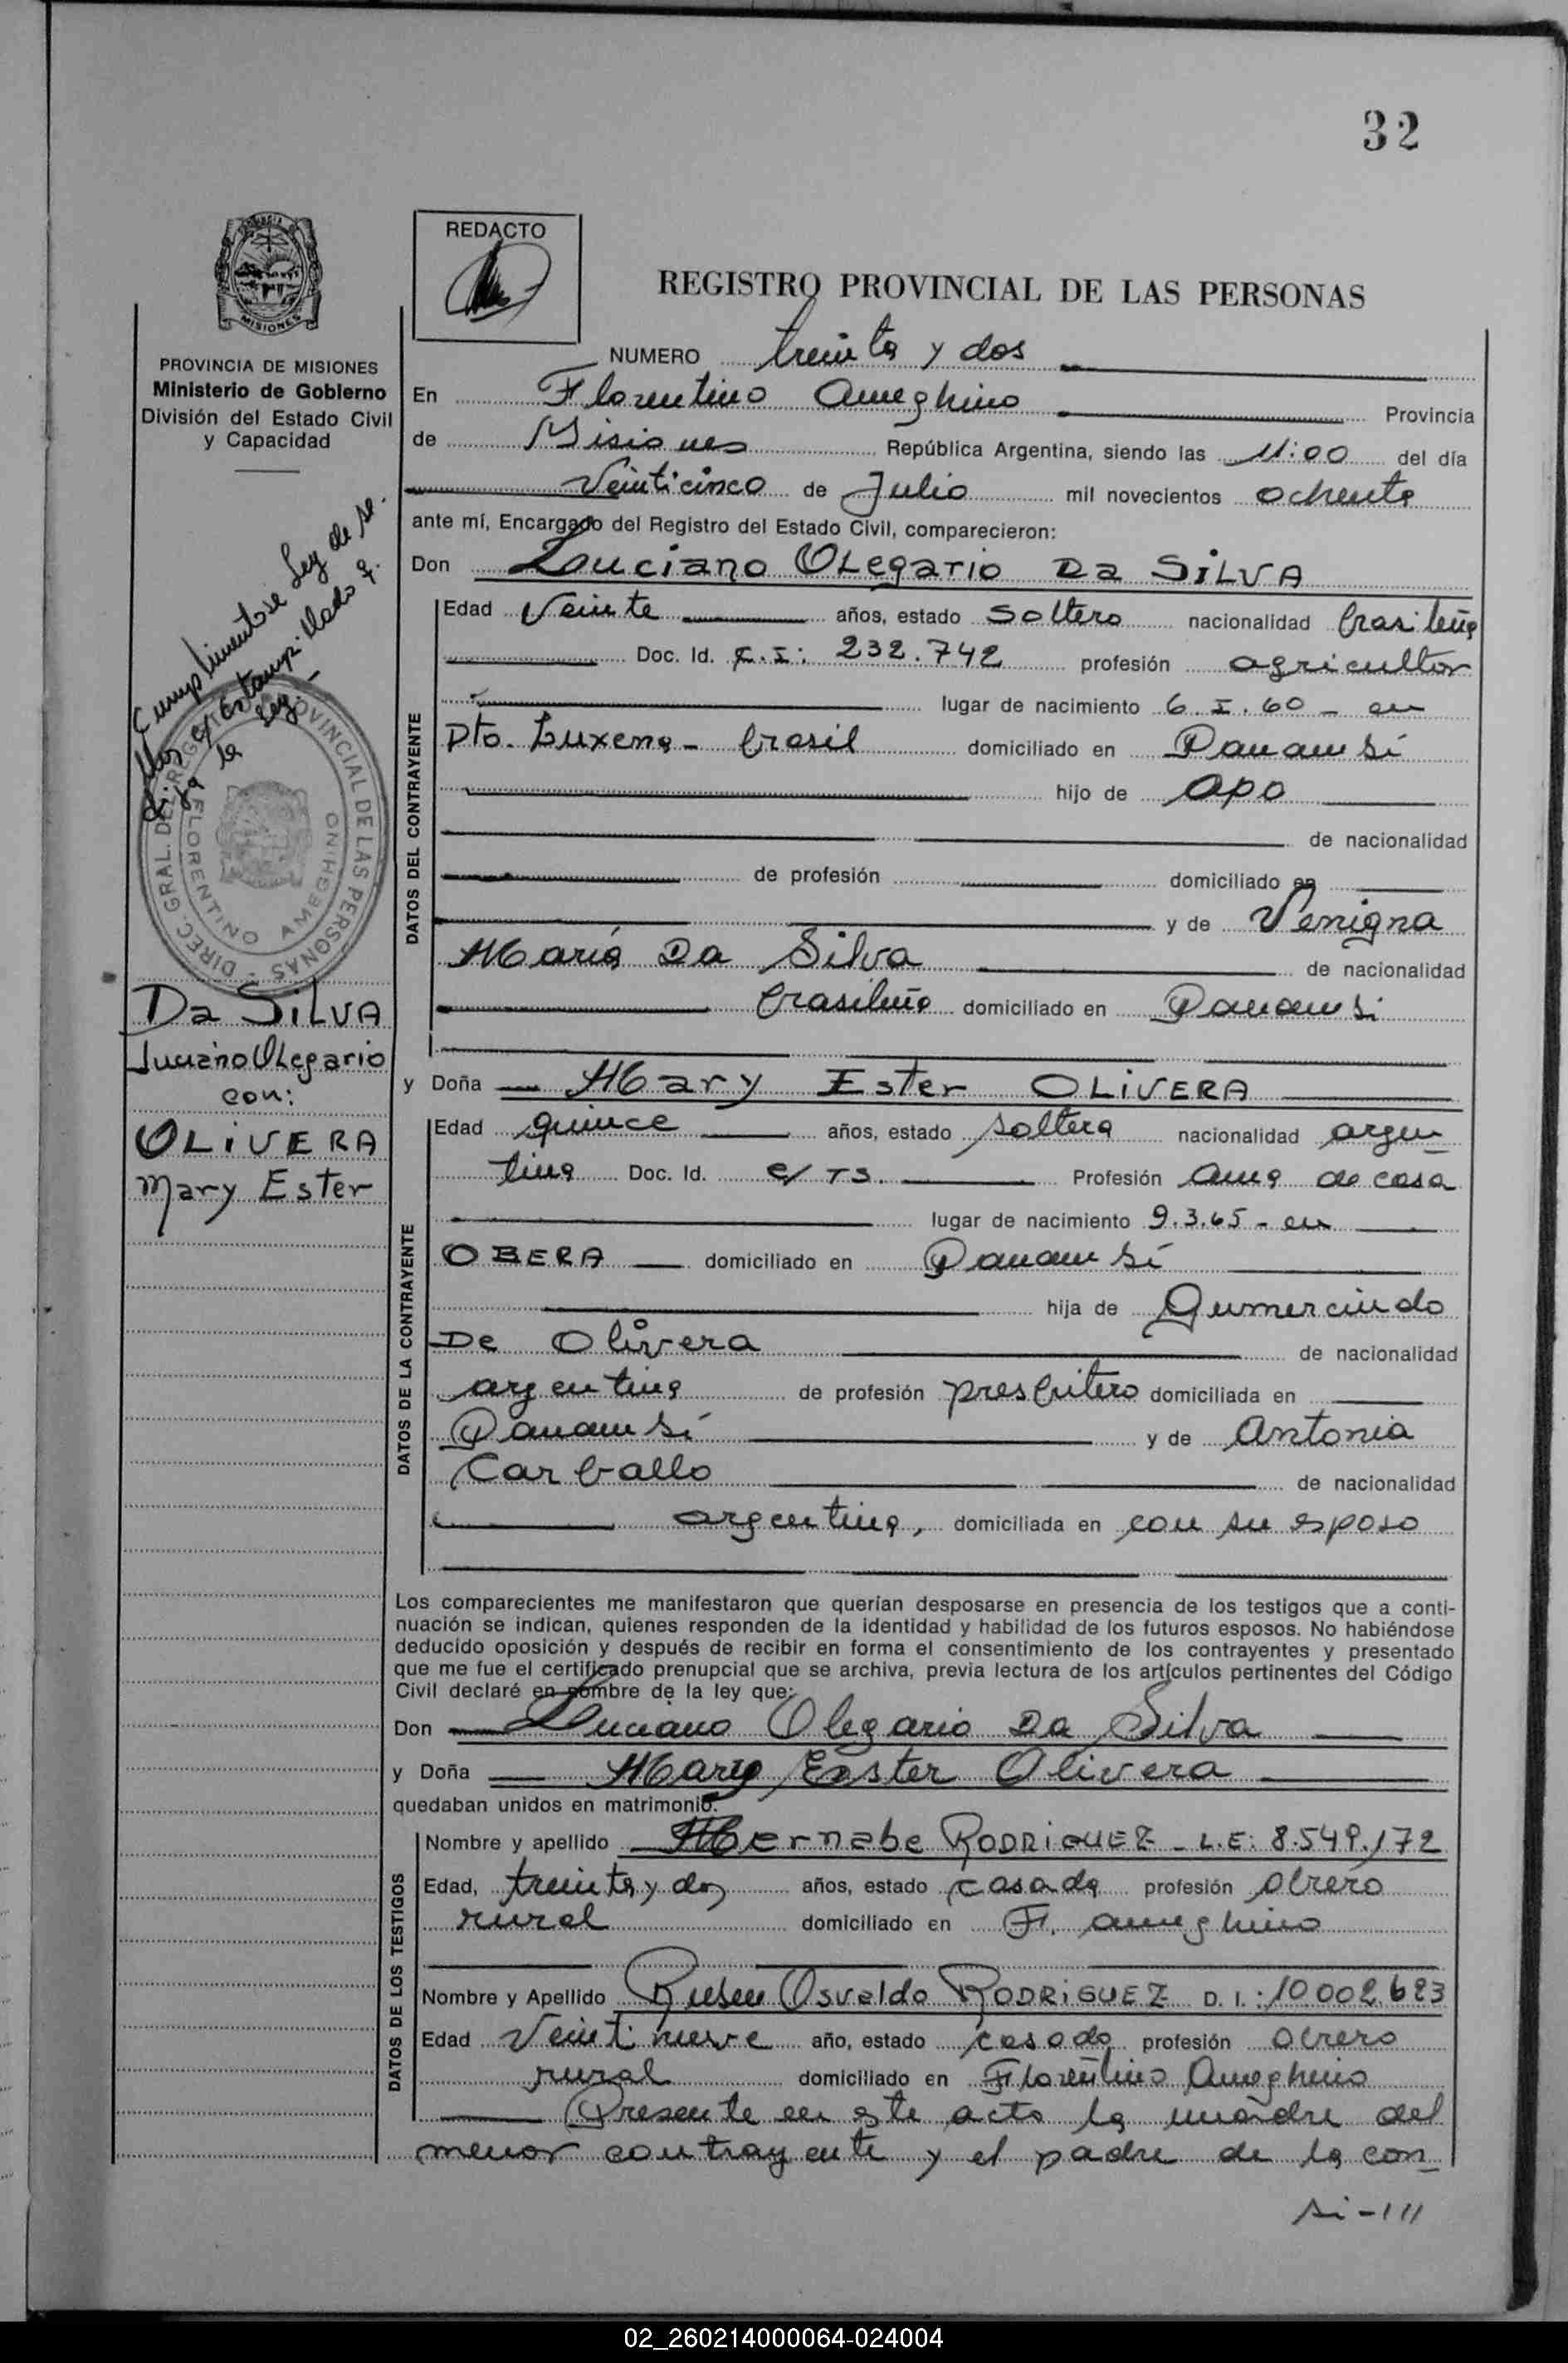 32
REDACTO
REGISTRO PROVINCIAL DE LAS PERSONAS
MISIONES
PROVINCIA DE MISIONES
Ministerio de Gobierno
División del Estado Civil
y Capacidad
Cumplimentose Ley de se-
llos es estampillado f.
ja la Ley.-
DIREC. GRAL. DEL REGISTRO PROVINCIAL DE LAS PERSONAS
FLORENTINO AMEGHINO
Da SiLVA
Luciano OLegario
con:
OLiVERA
Mary Ester
NUMERO treinta y dos
En Florentino Ameghino Provincia
de Misiones República Argentina, siendo las 11:00 del día
Veinticinco de Julio mil novecientos ochenta
ante mí, Encargado del Registro del Estado Civil, comparecieron:
Don Luciano OLegario Da SiLVA
DATOS DEL CONTRAYENTE
Edad Veinte años, estado Soltero nacionalidad brasileña
Doc. Id. C.I: 232.742 profesión agricultor
lugar de nacimiento 6.I.60 - en
Pto. Luxena - brasil domiciliado en Panambí
hijo de
de nacionalidad
de profesión domiciliado en
y de Venigna
María Da Silva de nacionalidad
brasileña domiciliado en Panambi
y Doña Mary Ester OLiVERA
DATOS DE LA CONTRAYENTE
Edad quince años, estado soltera nacionalidad argen-
tina Doc. Id. e/ TS. Profesión ama de casa
lugar de nacimiento 9.3.65 - en
OBERA domiciliado en Panambí
hija de Gumercindo
De Olivera de nacionalidad
argentina de profesión presbitero domiciliada en
Panambí y de Antonia
Carballo de nacionalidad
argentina, domiciliada en con su esposo
Los comparecientes me manifestaron que querían desposarse en presencia de los testigos que a conti-
nuación se indican, quienes responden de la identidad y habilidad de los futuros esposos. No habiéndose
deducido oposición y después de recibir en forma el consentimiento de los contrayentes y presentado
que me fue el certificado prenupcial que se archiva, previa lectura de los artículos pertinentes del Código
Civil declaré en nombre de la ley que:
Don Luciano Olegario Da Silva
y Doña Mary Ester Olivera
quedaban unidos en matrimonio.
DATOS DE LOS TESTIGOS
Nombre y apellido RODRiGUEZ - L.E: 8.549.172
Edad, treinta y dos años, estado casado profesión obrero
rural domiciliado en Fl. Ameghino
Nombre y Apellido Ruben Osvaldo RODRiGUEZ D.I.: 10.002.623
Edad Veintinueve año, estado casado profesión obrero
rural domiciliado en Florentino Ameghino
Presente en este acto la madre del
menor contrayente y el padre de la con-
si-///
02_260214000064-024004